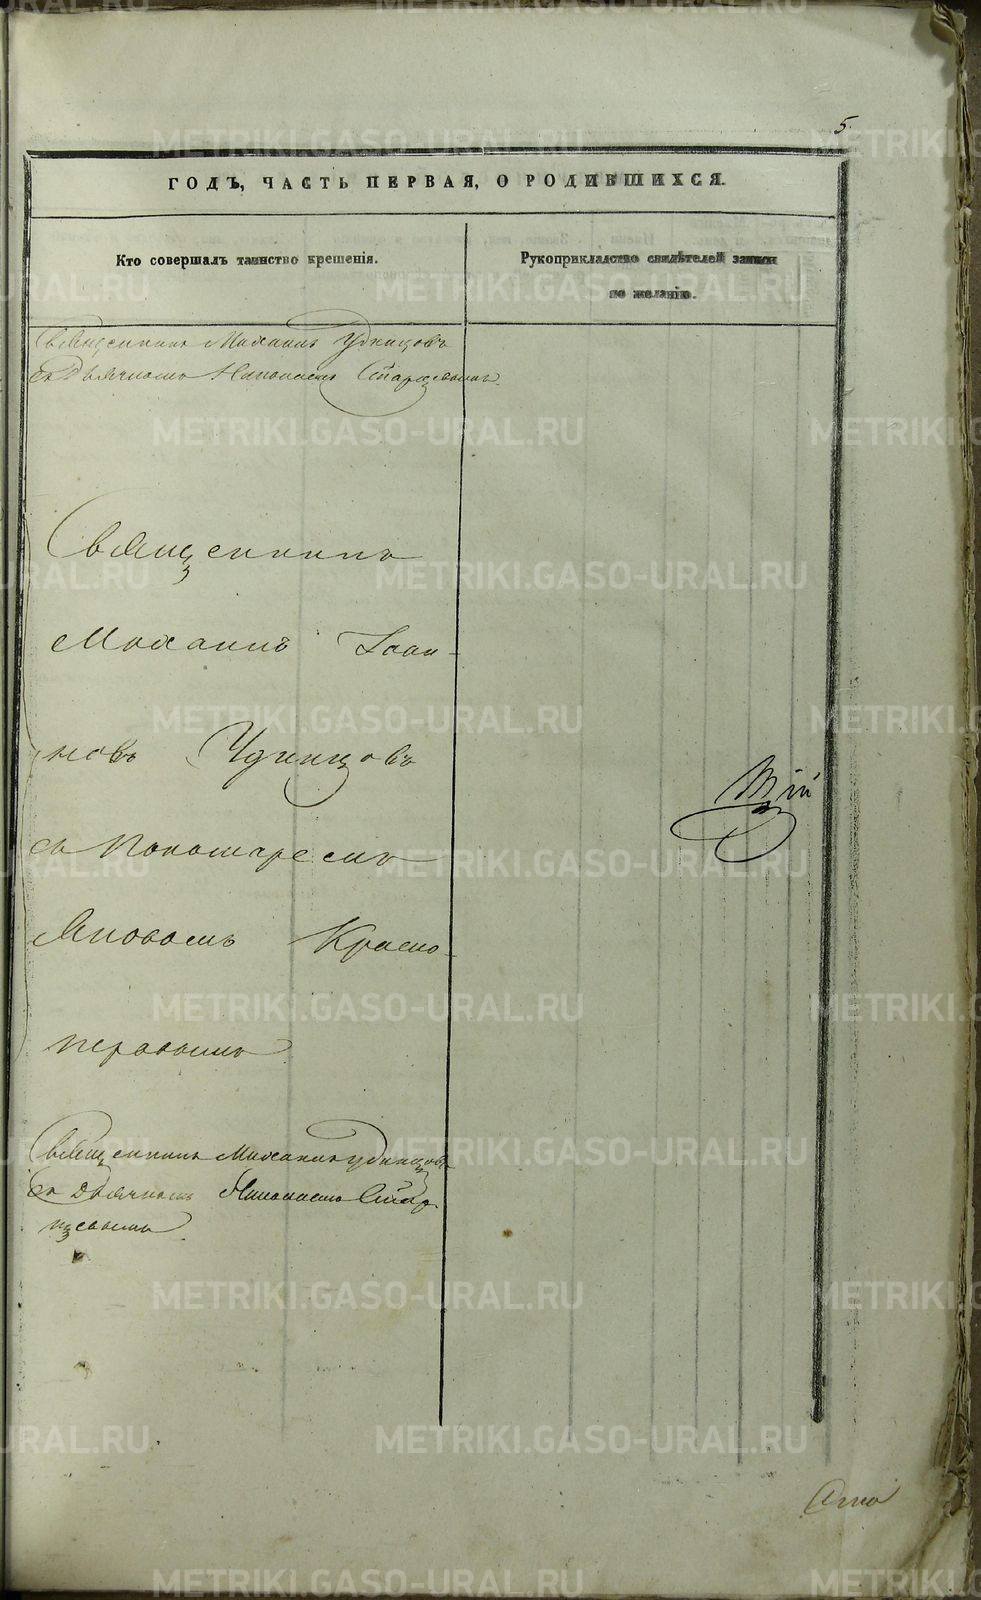 5.
ГОДЪ, ЧАСТЬ ПЕРВАЯ, О РОДИВШИХСЯ.
Кто совершалъ таинство крещенія.
Рукоприкладство свидѣтелей записи
по желанію.
Священникъ Михаилъ Удинцовъ
съ Дьячкомъ Николаемъ Старцевымъ.
Священникъ
Михаилъ Іоан-
новъ Удинцовъ
съ Пономаремъ
Яковомъ Красно-
перовымъ
Священникъ Михаилъ Удинцовъ
съ Дьячкомъ Николаемъ Стар-
цевымъ
METRIKI.GASO-URAL.RU